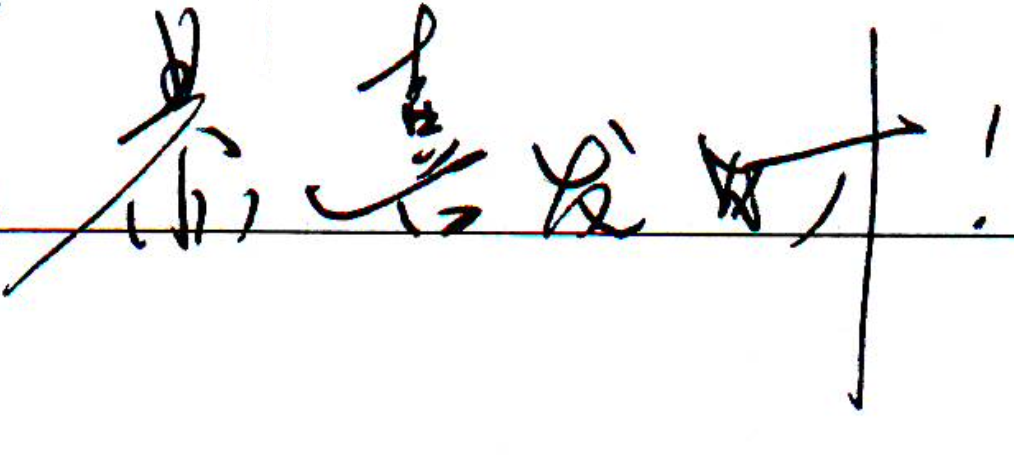 恭喜发财!